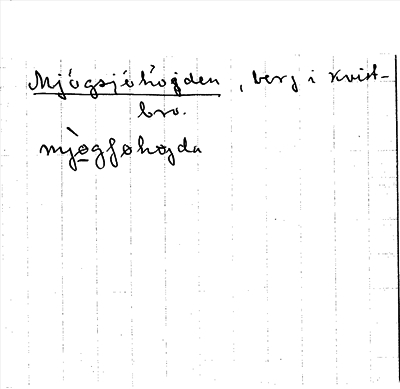 Mjögsjöhöjden, berg i Kvist-
bro.
mjògsʃøhøjda